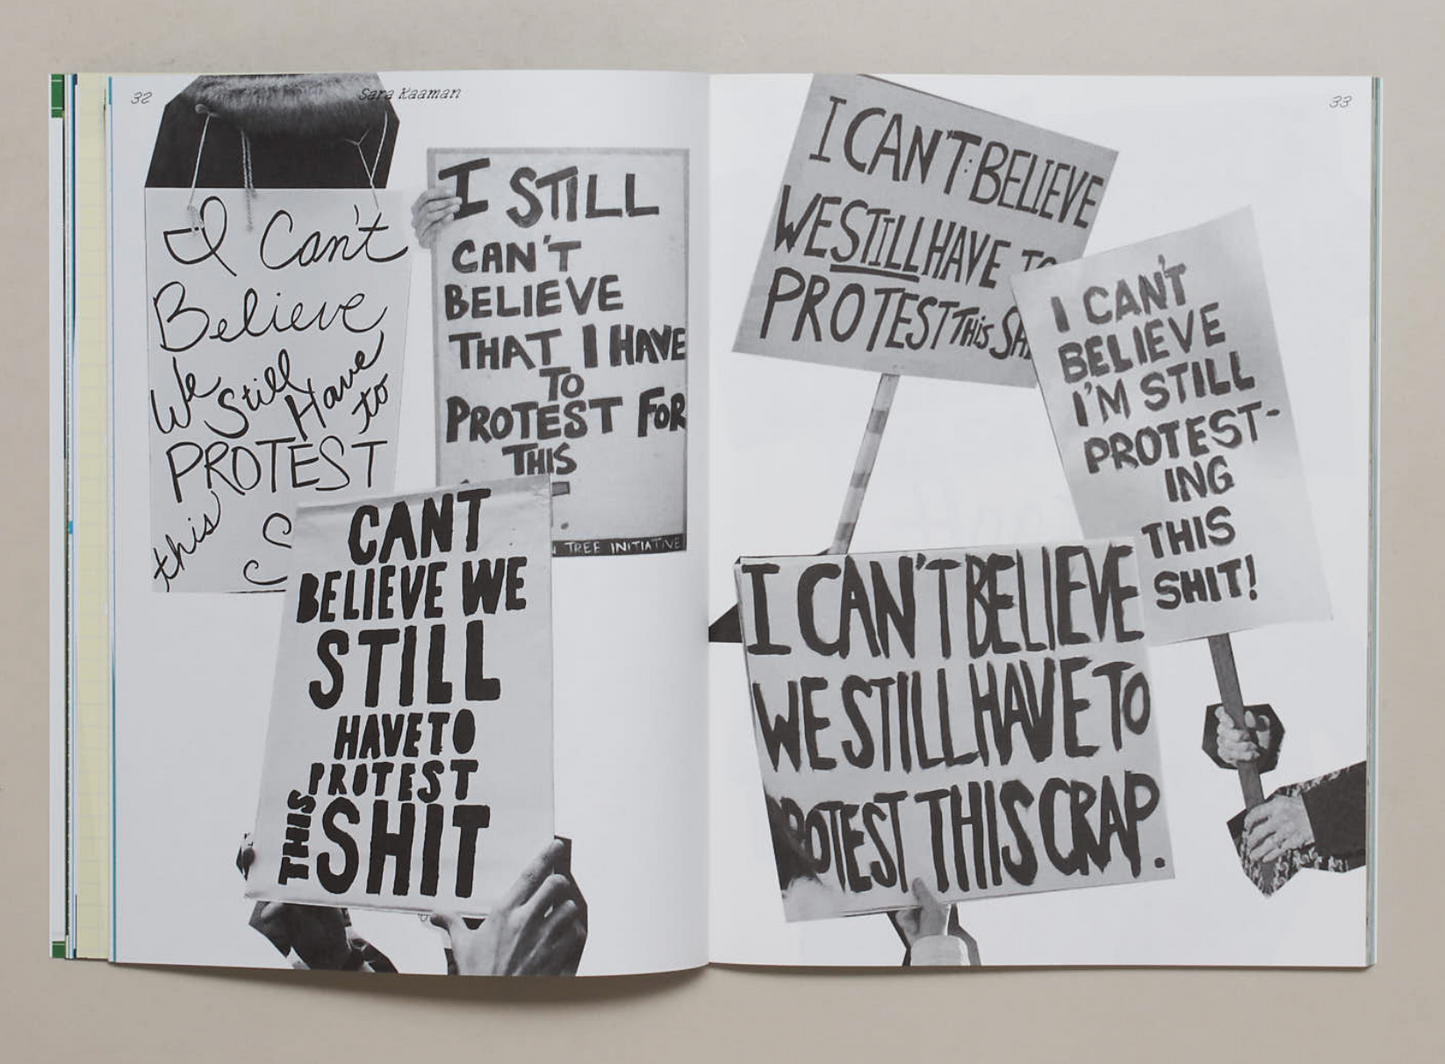 32
Sara Kaaman
I Can't
Believe
We Still Have to
PROTEST
this
I STILL
CAN'T
BELIEVE
THAT I HAVE
TO
PROTEST FOR
THIS
TREE INITIATIVE
CANT
BELIEVE WE
STILL
HAVE TO
PROTEST
THIS SHIT
33
I CAN'T BELIEVE
WE STILL HAVE TO
PROTEST THiS
I CAN'T
BELIEVE
I'M STILL
PROTEST-
ING
THIS
SHIT!
I CAN'T BELIEVE
WE STILL HAVE TO
ROTEST THIS CRAP.